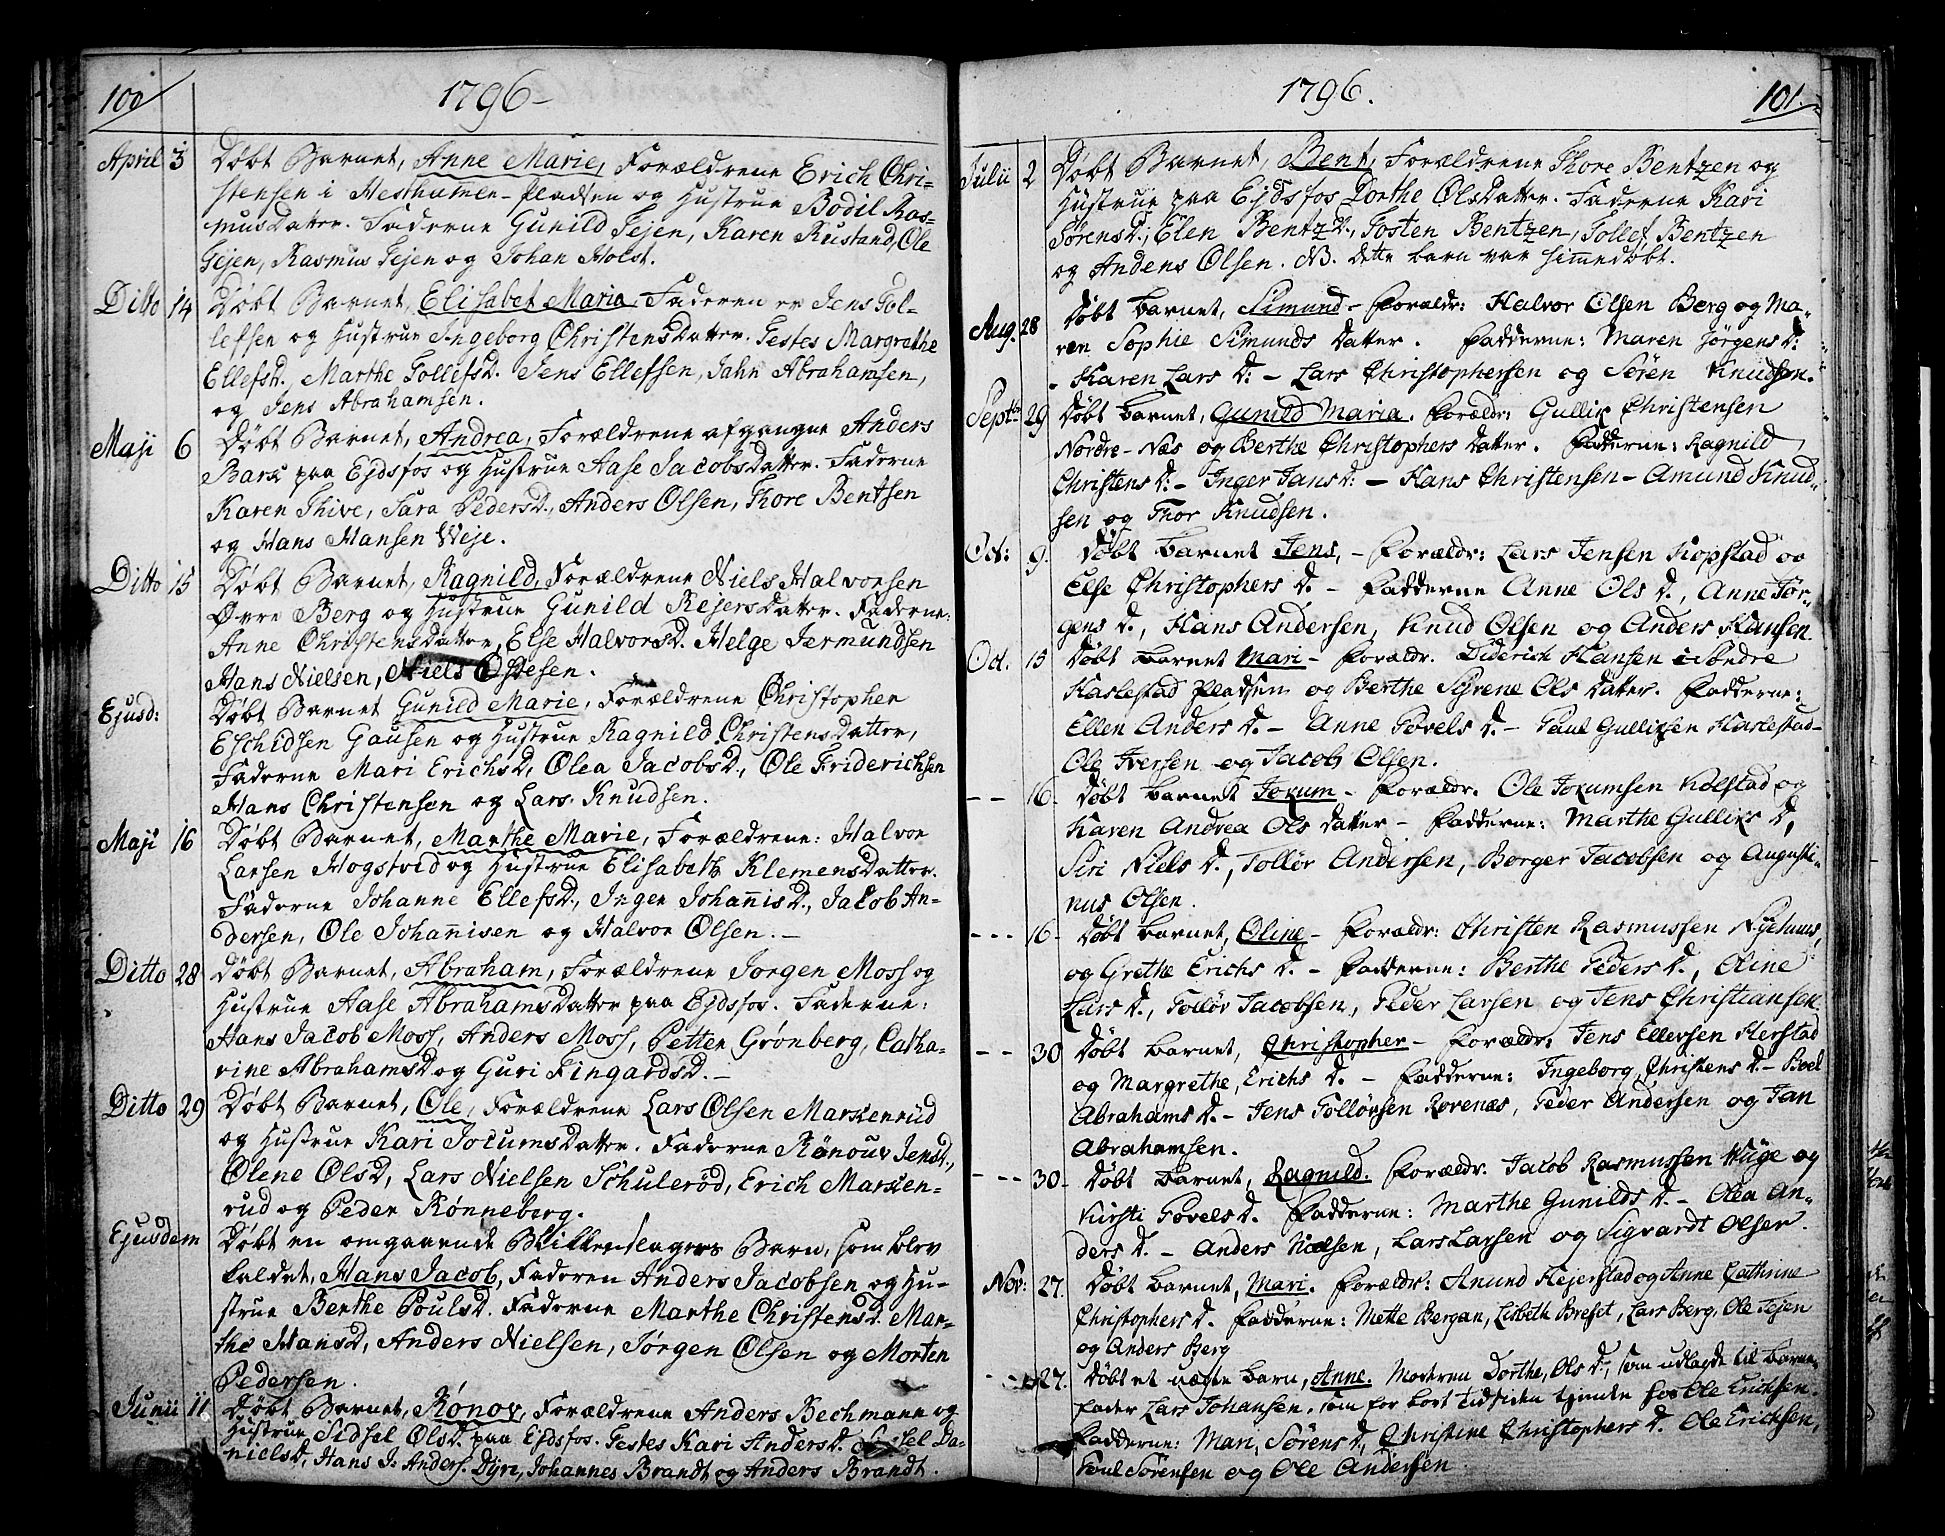 100
1796-
April 3 Døbt Barnet, Anne Marie, Forældrene Erich Chri-
stensen i Hesthammer-Pladsen og Hustrue Bodil Ras-
musDatter. Fadderne Gunild Tejen, Karen Rustand, Ole
Tejen, Rasmus Tejen og Johan Holst.
Ditto 14 Døbt Barnet, Elisabet Maria, Faderen er Jens Tol-
lefsen og Hustrue Ingeborg ChristensDatter. Testes Margrethe
EllefsD., Marthe TollefsD. Jens Ellefsen, Jahn Abrahamsen,
og Jens Abrahamsen.
Maji 6 Døbt Barnet, Andrea, Forældrene afgangne Anders
Barx paa Ejdsfos og Hustrue Aase JacobsDatter. Faderne
Karen Thive, Sara PedersD., Anders Olsen, Thore Bentsen
og Hans Hansen Weje.
Ditto 15 Døbt Barnet, Ragnild, Forældrene Niels Halvorsen
Øvre Berg og Hustrue Gunild RejersDatter. Faderne:
Anne ChristensDatter, Else HalvorsD. Helge Jermundsen
Hans Nielsen, Niels Ostesen.
Ejusd: Døbt Barnet Gunild Marie, Forældrene Christopher
Eschidsen Gausen og Hustrue Ragnild ChristensDatter,
Faderne Mari ErichsD, Olea JacobsD., Ole Friderichsen
Hans Christensen og Lars Knudsen.
Maji 16 Døbt Barnet, Marthe Marie, Forældrene: Halvor
Larsen Hogstvedt og Hustrue Elisabeth KlemensDatter.
Faderne Johanne EllefsD., Inger JohannisD., Jacob An-
dersen, Ole Johannisen og Halvor Olsen.-
Ditto 28 Døbt Barnet, Abraham, Forældrene Jørgen Moss og
Hustrue Aase AbrahamsDatter paa Ejdsfos. Faderne:
Hans Jacob Moss, Anders Moss, Petter Grønberg, Catha-
rine AbrahamsD og Guri FingardsD.-
Ditto 29 Døbt Barnet, Ole, Forældrene Lars Olsen Marxenrud
og Hustrue Kari JocumsDatter. Faderne Rønouv JensD.,
Olene OlsD, Lars Nielsen Schulerød, Erich Marxen-
rud og Peder Rønneberg.
Ejusdem Døbt en omgaaende Blikkenslagers Barn, som blev
kaldet, Hans Jacob, Faderen Anders Jacobsen og Hu-
strue Berthe PoulsD. Faderne Marthe ChristensD. Mar-
the HansD, Anders Nielsen, Jørgen Olsen og Morten
Pedersen.
Junii 11 Døbt Barnet, Rønov, Forældrene Anders Bechmann og
Hustrue Sidsel OlsD. paa Ejdsfos. Testes Kari AndersD. Sissel Da-
nielsD, Hans J: Anders. Dyri, Johannes Brandt og Anders Brandt.
1796.
101.
Julii 2 Døbt Barnet, Bent, Forældrene Thore Bentzen og
Hustrue paa Ejdsfos Dorthe OlsDatter. Faderne Kari
SørensD., Elen BentzD., Tosten Bentzen, Tollef Bentzen
og Anders Olsen. NB. dette barn var himmedøbt.
Aug. 28 Døbt barnet, Simund - Forældr: Halvor Olsen Berg og Ma-
ren Sophie Simunds Datter. Fadderne: Maren JørgensD:
- Karen Lars D: - Lars Christophersen og Søren Knudsen.
Septbr 29 Døbt barnet, Gunild Maria. Forældr: Gullix Christensen
Nordre-Næs og Berthe Christophers Datter. Fadderne: Ragnild
Christens D: - Inger Jans D: - Hans Christensen - Amund Knud-
sen og Thor Knudsen.
Oct: 9. Døbt barnet Jens, - Forældr: Lars Jensen Kopstad og
Else Christophers D. - Fadderne Anne Ols D., Anne Jør-
gens D., Hans Andersen, Knud Olsen og Anders Hansen
Oct. 15 Døbt barnet Mari - Forældr. Diderich Hansen i Søndre
Haslestad Pladsen og Berthe Syrene Ols Datter. Fadderne:
Ellen Anders D. - Anne Povels D. - Paul Gullixsen Haslestad-
Ole Iversen og Jacob Olsen.
- - 16. Døbt barnet Jokum - Forældr. Ole Jokumsen Kolstad og
Karen Andrea Ols Datter - Fadderne: Marthe Gullixs D,
Siri Niels D., Tollør Andersen, Borger Jacobsen og Augusti-
nus Olsen.
- - - 16- Døbt barnet, Oline - Forældr: Christen Rasmussen Nyehuus,
og Grethe Erichs D. - Fadderne: Berthe Peders D., Oline
Lars D., Tollør Jacobsen, Peder Larsen og Jens Christiansen
- - 30 Døbt barnet, Christopher - Forældr: Jens Ellevsen Herstad
og Margrethe, Erichs D. - Fadderne: Ingeborg, Christens D. - Boel
Abrahams D. - Jens Tollørsen Rovenæs, Peder Andersen og Jan
Abrahamsen.
- - - 30- Døbt barnet, Ragnild. Forældr. Jacob Rasmussen Huge og
Kirsti Povels D. Fadderne: Marthe Gunilds D. - Olea An-
ders D. - Anders Nielsen, Lars Larsen og Sigvardt Olsen.
Nov: 27. Døbt barnet, Mari. Forældr: Amund Hejerstad og Anne Cathrine
Christophers D. Fadderne: Mette Bergan, Lisbeth Breset, Lars Berg, Ole Tejen
og Anders Berg
- - 27. Døbt et uægte barn, Anne. Moderen Dorthe, Ols D., som udlagde til barne-
fader Lars Johansen, som for kort Tid siden tjente hos Ole Ericksen.
Fadderne: Mari, Sørens D, Christine Christophers D. Ole Erichsen,
Poul Sørensen og Ole Andersen